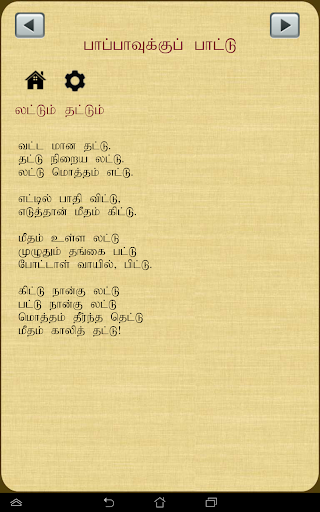 பாப்பாவுக்குப் பாட்டு
லட்டும் தட்டும்
வட்ட மான தட்டு.
தட்டு நிறைய லட்டு.
லட்டு மொத்தம் எட்டு.
எட்டில் பாதி விட்டு,
எடுத்தான் மீதம் கிட்டு.
மீதம் உள்ள லட்டு
முழுதும் தங்கை பட்டு
போட்டாள் வாயில், பிட்டு.
கிட்டு நான்கு லட்டு
பட்டு நான்கு லட்டு
மொத்தம் தீர்ந்த தெட்டு
மீதம் காலித் தட்டு!